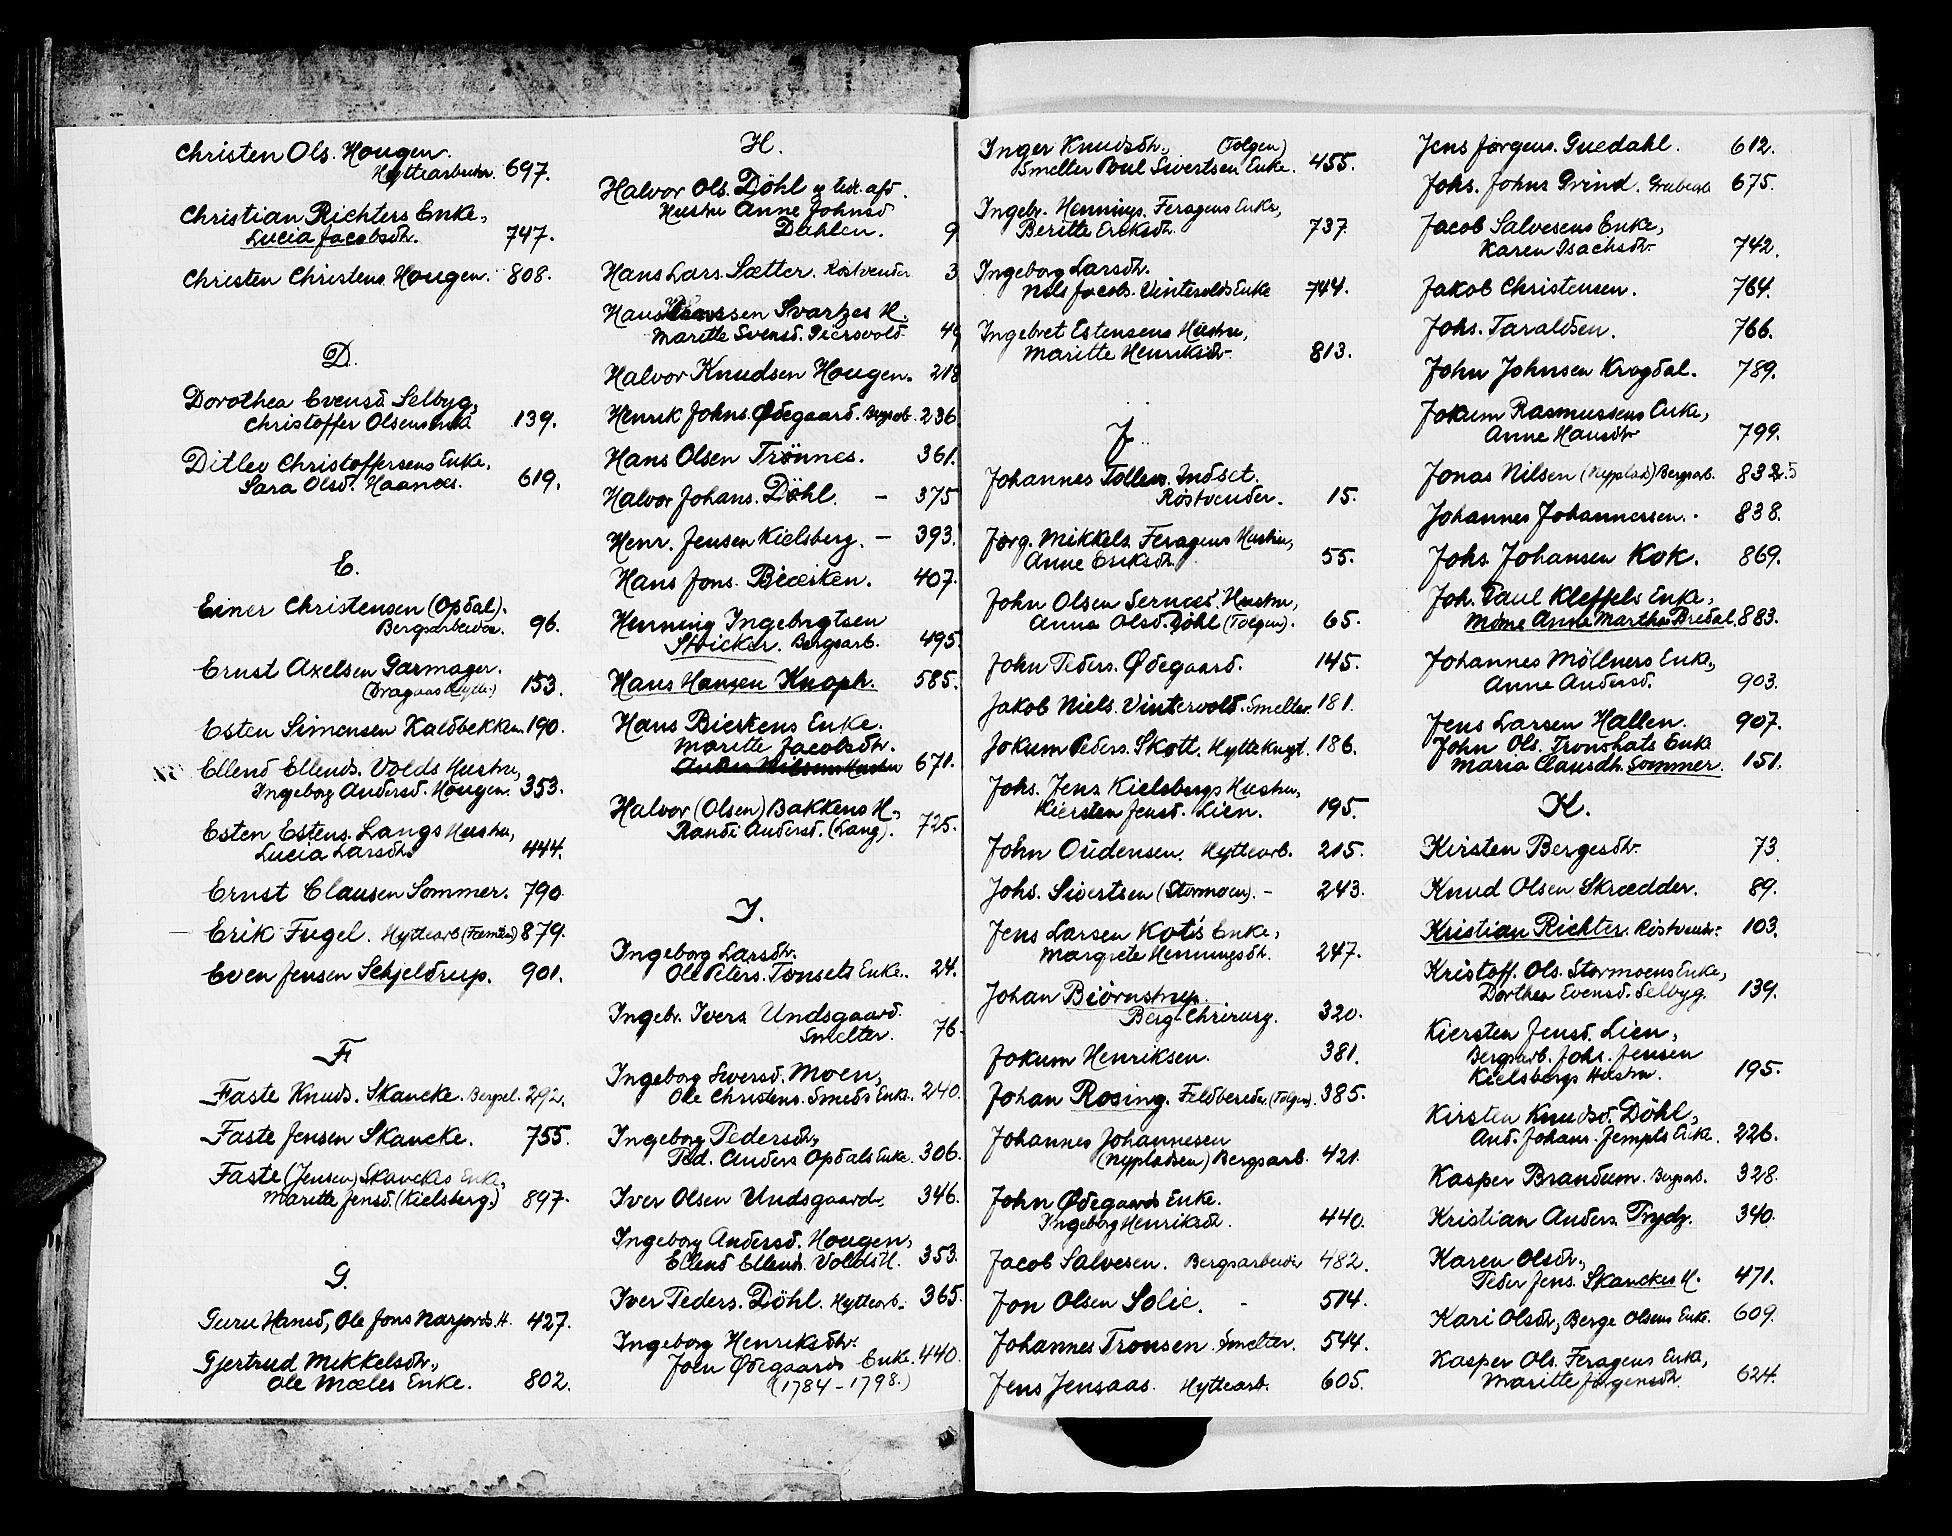 Christen Ols. Hougen.
Hyttearbeider. 697.
Christian Richters Enke,
Lucia Jacobsdtr. 747.
Christen Christens. Hougen. 808.
D.
Dorothea Evensd. Selbyg,
Christoffer Olsens Enke 139.
Ditlev Christoffersens Enke,
Sara Olsd. Haanæs. 619.
E.
Einer Christensen (Opdal).
Bergsarbeider. 96.
Ernst Axelsen Garmager.
(Dragaas Hytte) 153.
Esten Simensen Kaldbekken. 190.
Ellend Ellends. Volds Hustru,
Ingeborg Andersd. Hougen. 353.
Esten Estens. Langs Hustru,
Lucia Larsdtr. 444.
Ernst Clausen Sommer. 790.
Erik Fugel. Hyttearb (Femund) 879.
Even Jensen Schjeldrup. 901.
F
Faste Knuds. Skancke. Bergsel. 292.
Faste Jensen Skancke. 755.
Faste (Jensen) Skanckes Enke,
Maritte Jensd. (Kielsberg) 897.
G.
Guru Hansd, Ole Jons Narjords H. 427.
Gjertrud Mikkelsdtr.,
Ole Mæles Enke. 802.
H.
Halvor Ols. Döhl og tid. afd.
Hustru Anne Johnsd
Dahlen. 9
Hans Lars. Sætter. Röstvender 3
Hans Hanssen Svartzes H.
Maritte Svensd. Giersvold 49
Halvor Knudsen Hougen. 218
Henrik Johns. Ødegaard. Bergsarb. 236
Hans Olsen Trönnes. 361.
Halvor Johans. Döhl. - 375
Henr. Jensen Kielsberg. - 393.
Hans Jons. Biesken. 407.
Henning Ingebrgtsen
Stricker. Bergsarb. 495.
Hans Hansen Knoph. 585.
Hans Bieskens Enke.
Maritte Jacobsdtr.
Anders Nilsens Hustru 671.
Halvor (Olsen) Bakkens H.,
Randi Andersd. (Lang). 725.
I.
Ingeborg Larsdtr.
Ole Peters. Tønsets Enke. 24.
Ingebr. Ivers Undsgaard.
Smelter. 76.
Ingeborg Iversd. Moen,
Ole Christens. Smeds Enke. 240.
Ingeborg Pedersdtr,
Ped. Anders Opdals Enke. 306.
Iver Olsen Undsgaard. 346.
Ingeborg Andersd. Hougen,
Ellend Ellends. Volds H. 353.
Iver Peders. Döhl. Hyttearb. 365.
Ingeborg Henriksdtr.
Joen Ødegaards Enke. 440.
(1784-1798.)
Inger Knudsdtr., (Tolgen)
Smelter Poul Sivertsen Enke. 455.
Ingebr. Hennings. Feragens Enke,
Beritte Eriksdtr. 737.
Ingeborg Larsdtr.
Nils Jacobs. Vintervolds Enke 744.
Ingebret Estensens Hustru,
Maritte Henriksdtr. 813.
J.
Johannes Tollevs. Indset.
Röstvender. 15.
Jørg. Mikkels. Feragens Hustru,
Anne Eriksdtr. 55.
John Olsen Sernæs' Hustru,
Anne Olsd. Döhl (Tolgen). 65.
John Peders. Ødegaard. 145.
Jakob Niels. Vintervold. Smelter. 181.
Jokum Peders. Skott. Hytteknægt. 186.
Johs. Jens. Kielsbergs Hustru,
Kiersten Jensd. Lien. 195.
John Oudensen. Hyttearb. 215.
Johs. Sivertsen (Stormoen). - 243.
Jens Larsen Kotis Enke,
Margrete Henningsdt. 247.
Johan Biörnstrup.
Berg-Chrirurg. 320.
Jokum Henriksen. 381.
Johan Rosing. Feldbereder (Tolgen). 385.
Johannes Johannesen
(Nypladsen) Bergsarb. 421.
John Ødegaards Enke.
Ingeborg Henriksdtr. 440.
Jacob Salvesen. Bergsarbeider 482.
Jon Olsen Solie. - 514.
Johannes Tronsen. Smelter. 544.
Jens Jensaas. Hyttearb. 605.
Jens Jørgens. Guldahl. 612.
Johs. Johns Grind. Grubearb. 675.
Jacob Salvesens Enke,
Karen Isachsdtr. 742.
Jakob Christensen. 764.
Johs. Taraldsen. 766.
John Johnsen Krogdal. 789.
Jokum Rasmussens Enke,
Anne Hansdtr 799.
Jonas Nilsen (Nyplads) Bergsarb. 832.5
Johannes Johannessen. 838.
Johs. Johansen Kok. 869.
Joh. Paul Kleffels Enke,
Mdme Anne Martha Bredal. 883.
Johannes Möllners Enke,
Anne Andersd. 903.
Jens Larsen Hallen. 907.
John Ols. Tronshats Enke
Maria Clausdtr. Sommer. 151.
K.
Kirsten Bergesdtr. 73.
Knud Olsen Skrædder. 89.
Kristian Richter. Röstvender. 103.
Kristoff. Ols. Stormoens Enke,
Dorthea Evensd. Selbyg. 139.
Kiersten Jensd. Lien,
Bergsarb. Johs. Jensen
Kielsbergs Hustru. 195.
Kirsten Knudsd. Döhl,
And. Johans. Jempts Enke. 226.
Kasper Brandum. Bergsarb. 328.
Kristian Anders. Trydz. 340.
Karen Olsdtr.,
Peder Jens. Skanckes H. 471.
Kari Olsdtr, Berge Olsens Enke. 609.
Kasper Ols. Feragens Enke,
Maritte Jørgensdtr. 624.